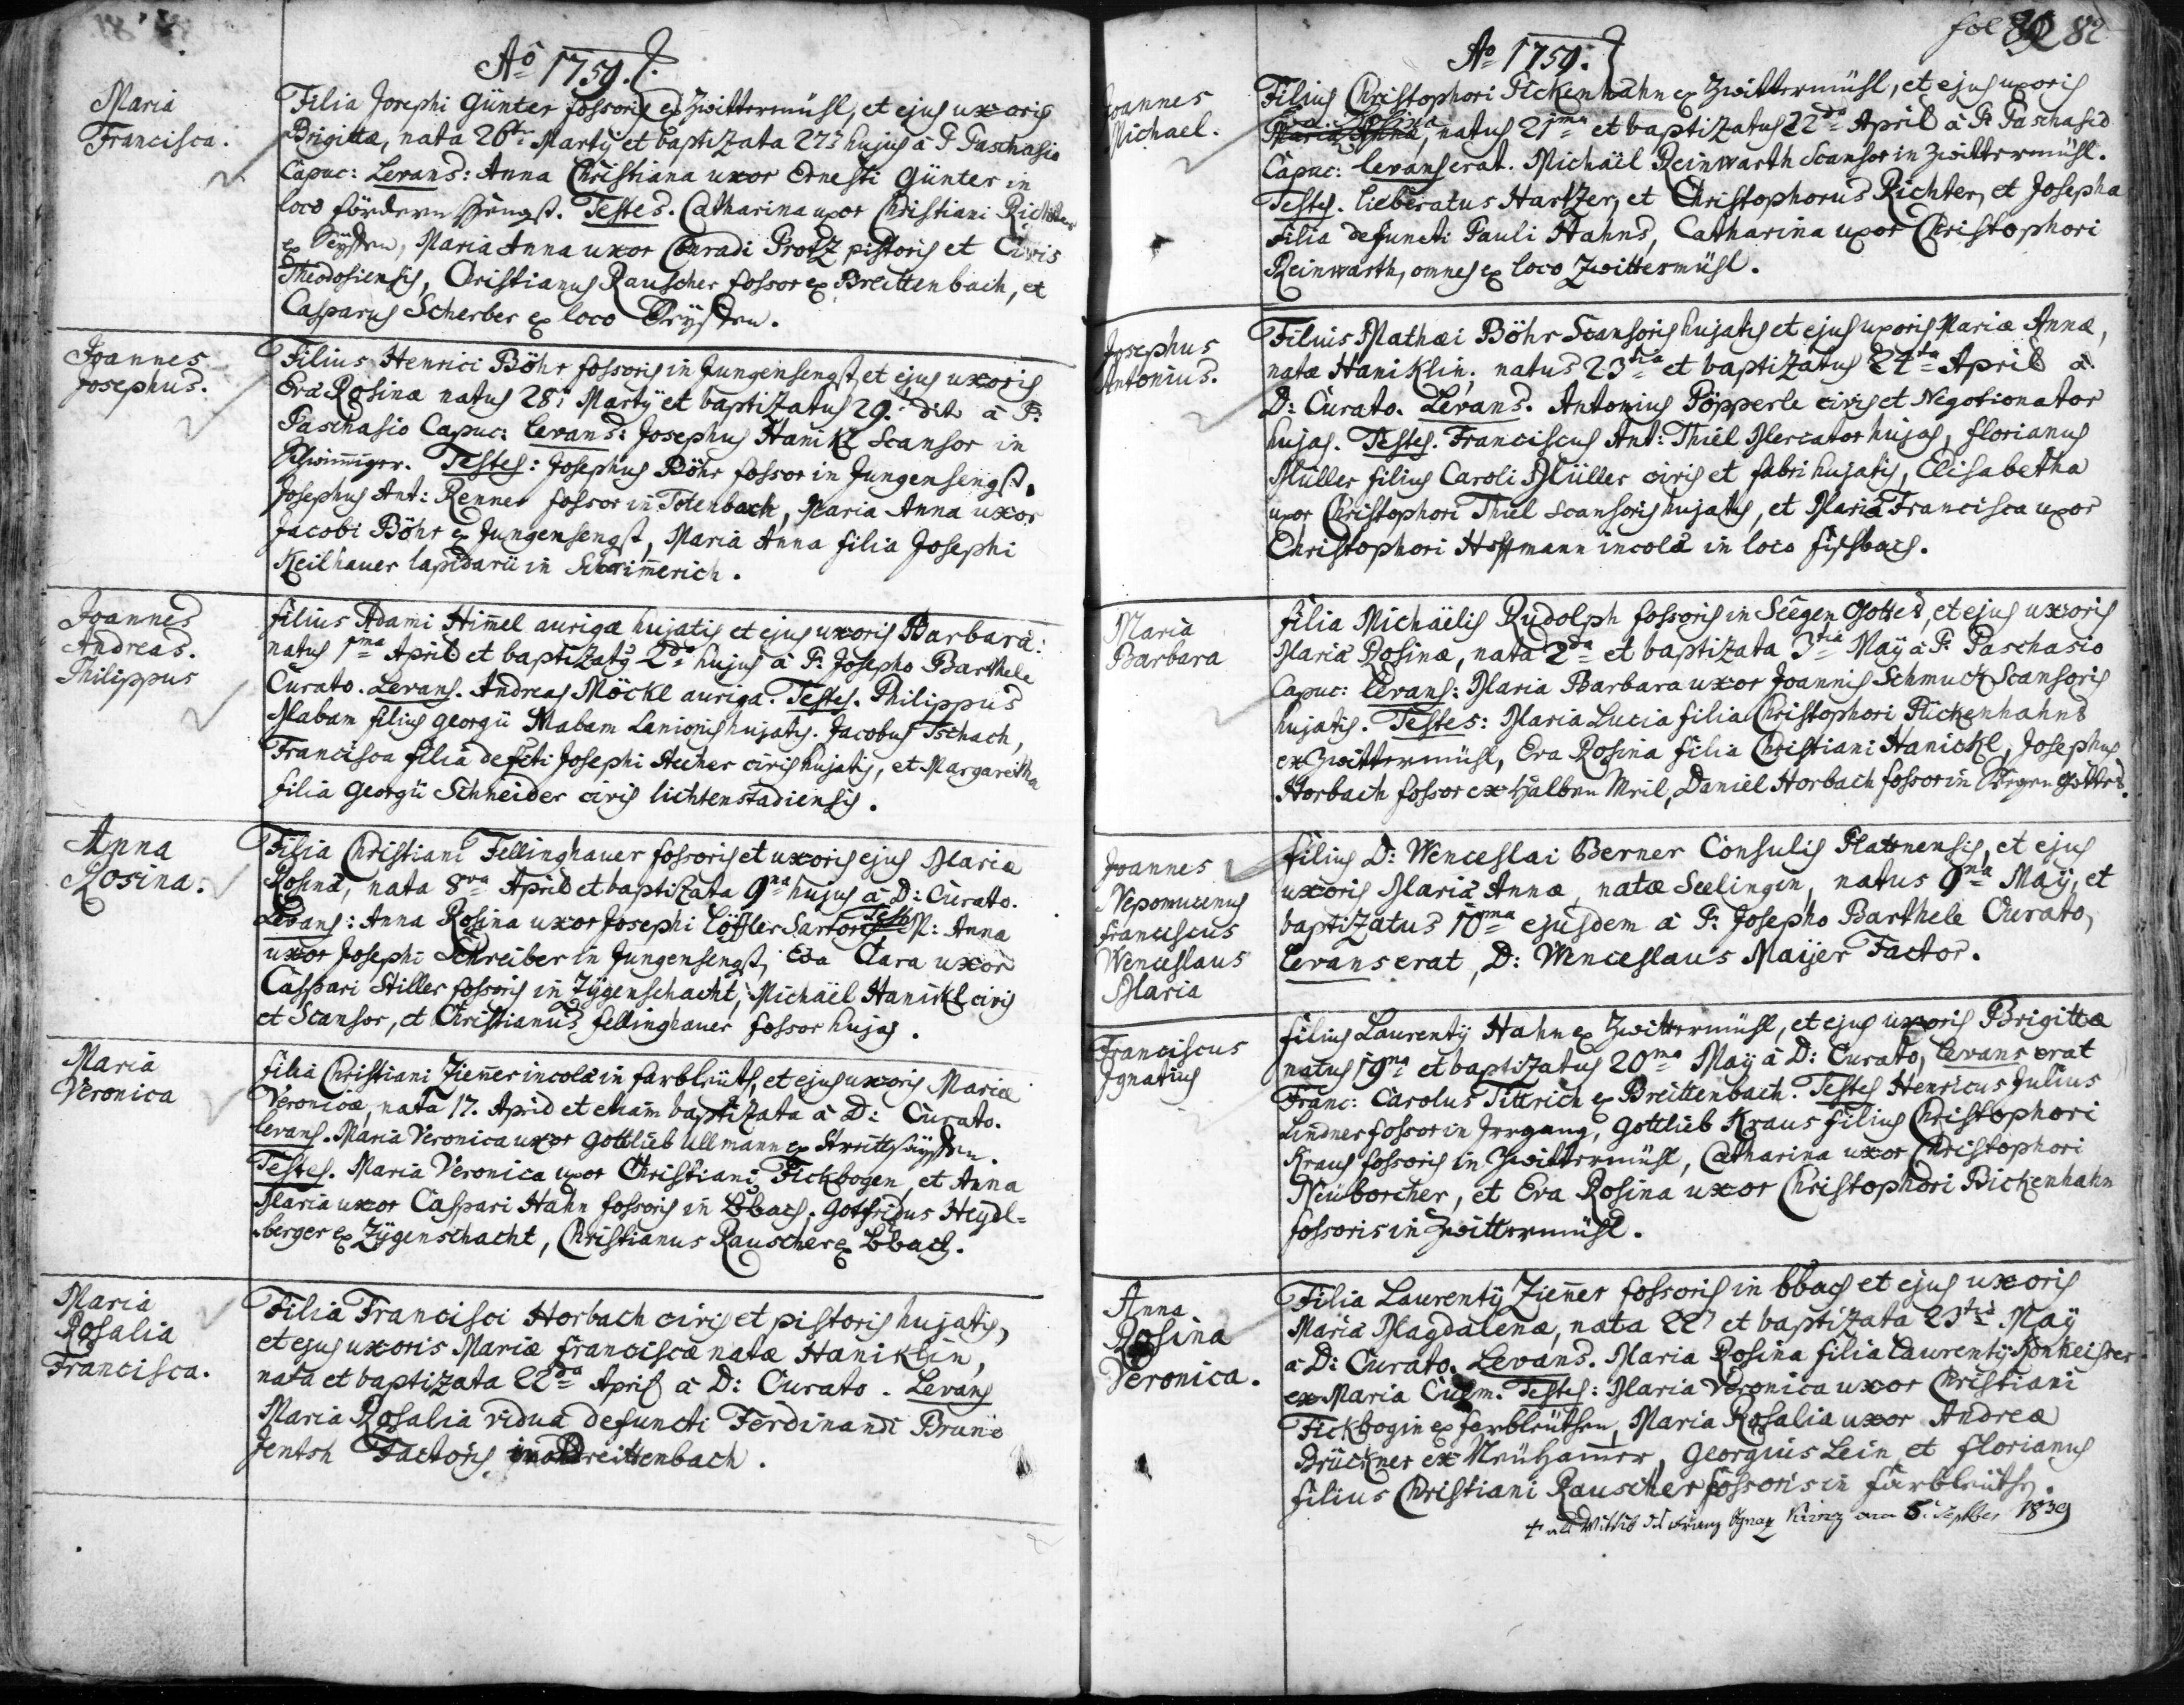 Aö 1759.
Maria
Francisca.
Filia Josephi Günter fossoris ex Zwittermühl, et ejus uxoris
Brigittæ, nata 26ta Martÿ et baptizata 27 hujus à P. Paschasio
Capuc: Levans: Anna Christiana uxor Ernesti Günter in
loco fördern Hengst. Testes. Catharina uxor Christiani Richter
ex Seÿffen, Maria Anna uxor Conradi Protz pistoris et Civis
Theodosiensis, Christianus Rauscher fossor ex Breittenbach, et
Casparus Scherber ex loco Seÿffen.
Joannes
Josephus.
Filius Henrici Böhr fossoris in Jungenhengst, et ejus uxoris
Eva Rosinæ natus 28. Martÿ et baptizatus 29. dito à P.
Paschasio Capuc: Levans: Josephus Hanikl Scansor in
Schwimmiger. Testes: Josephus Böhr fossor in Jungenhengst,
Josephus Ant: Renner fossor in Totenbach, Maria Anna uxor
Jacobi Böhr ex Jungenhengst, Maria Anna filia Josephi
Keilhauer lapidarii in Schwimmerich.
Joannes
Andreas.
Philippus
filius Adami Himel aurigæ hujatis et ejus uxoris Barbara:
natus 1ma April et baptizatus 2da hujus à P. Josepho Barthele
Curato. Levans. Andreas Möckl auriga. Testes. Philippus
Mabam filius georgii Mabam Lanionis hujatis. Jacobus Tschach,
Francisca filia defcti Josephi civis hujatis, et Margaretha
filia Georgii Schneider civis lichtenstadiensis.
Anna
Rosina.
Filia Christiani Fellinghauer fossoris et uxoris ejus Maria
Rosina, nata 8va April et baptizata 9na hujus à D: Curato.
Levans: Anna Rosina uxor Josephi Löffler Sartoris Testes M: Anna
uxor Josephi Schreiber in Jungenhengst, Eva Clara uxor
Caspari Stiller fossoris in Zÿgenschacht, Michaël Hanikl civis
et Scansor, et Christianus fellinghauer fossor hujas.
Maria
Veronica
filia Christiani Ziener incola in farbleüth, et ejus uxoris Mariæ
Veronicæ, nata 17. April et etiam baptizata à D: Curato.
Levans. Maria Veronica uxor Gottlieb Ullmann ex Streittseÿffen.
Testes. Maria Veronica uxor Christiani Fickbogen, et Anna
Maria uxor Caspari Hahn fossoris in Bbach, Gotfridus Heÿdl=
berger ex Zÿgenschacht, Christianus Rauscher ex Bbach.
Maria
Rosalia
Francisca.
Filia Francisci Horbach civis et pistoris hujatis,
et ejus uxoris Mariæ franciscæ natæ Haniklin,
nata et baptizata 22da April à D: Curato. Levans
Maria Rosalia vidua defuncti Ferdinandi Bruno
Jentsh Factoris in Breittenbach.
fol 82
Aö 1759.
Joannes
Michael.
Filius Christophori Pickenhahn ex Zwittermühl, et ejus uxoris
natus 21ma et baptizatus 22da April à P. Paschasio
Capuc: Levans erat. Michaël Reinwarth Scansor in Zwittermühl.
Testes. Lieberatus Hartzer, et Christophorus Richter, et Josepha
filia defuncti Pauli Hahns, Catharina uxor Christophori
Reinwarth, omnes ex loco Zwittermühl.
Josephus
Antonius.
Filius Mathæi Böhr Scansoris hujatis et ejus uxoris Mariæ Annæ,
natæ Haniklin, natus 23tia et baptizatus 24ta April à
D: Curato. Levans. Antonius Pöpperle civis et Negotionator
hujas. Testes. Franciscus Ant: Thiel Mercator hujas, florianus
Müller filius Caroli Müller civis et fabri hujatis, Elisabetha
uxor Christophori Thiel scansoris hujatis, et Maria Francisca uxor
Christophori Hoffmann incola in loco fischbach.
Maria
Barbara
filia Michaëlis Rudolph fossoris in Seegen Gottes, et ejus uxoris
Maria Rosinæ, nata 2da et baptizata 3tia Maÿ à P. Paschasio
Capuc: Levans: Maria Barbara uxor Joannis Schmuck Scansoris
hujatis. Testes: Maria Lucia filia Christophori Pickenhahns
ex Zwittermühl, Eva Rosina filia Christiani Hanickl, Josephus
Horbach fossor ex Halben Meil, Daniel Horbach fossor in Seegen Gottes.
Joannes
Nepomucenus
franciscus
Wenceslaus
Maria
filius D: Wenceslai Berner Consulis Plattnensis, et ejus
uxoris Maria Annæ, natæ Seelingin, natus 9na Maÿ, et
baptizatus 10ma ejusdem à P. Josepho Barthele Curato,
Levans erat, D: Wenceslaus Maijer Factor.
Franciscus
Ignatius
filius Laurentÿ Hahn ex Zwittermühl, et ejus uxoris Brigittæ
natus 19na et baptizatus 20ma Maÿ à D: Curato, Levans erat
Franc: Carolus Tittrich ex Breittenbach. Testes Henricus Julius
Lindner fossor in Irrgang, Gottlieb Kraus filius Christophori
Kraus fossoris in Zwittermühl, Catharina uxor Christophori
Neüborcher, et Eva Rosina uxor Christophori Bickenhahn
fossoris in Zwittermühl.
Anna
Rosina
Veronica.
Filia Laurentÿ Ziener fossoris in bbach et ejus uxoris
Maria Magdalenæ, nata 22 et baptizata 23tia Maÿ
à D: Curato. Levans. Maria Rosina filia Laurentÿ
ex Maria Culm. Testes: Maria Veronica uxor Christiani
Fickbogin ex farbleüthen, Maria Rosalia uxor Andreæ
Brückner ex Neühamer, Georgius Lein, et florianus
filius Christiani Rauscher fossoris in farbleüth.
5. September 1839